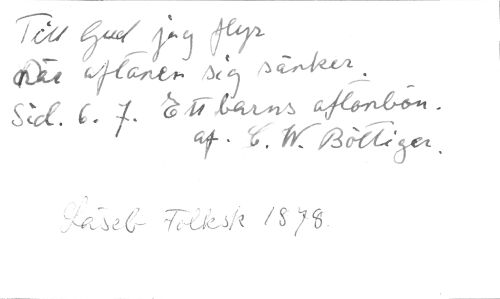 Till Gud jag flyr
När aftonen sig sänker.
Sid. 6. 7. Ett barns aftonbön.
af. C. W. Böttiger.
Läseb Folksk 1878.